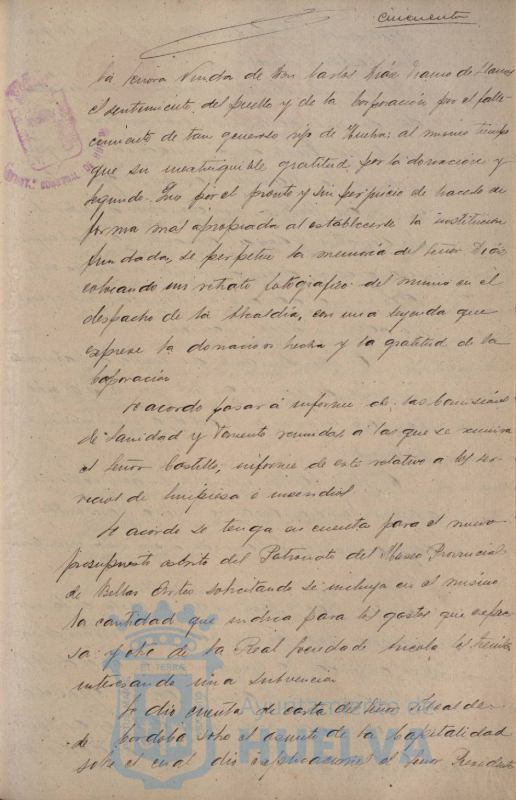 Cincuenta
la señora Viuda de Don Carlos Díaz Franco de Llanos
el sentimiento del pueblo y de la Corporación por el falle-
cimiento de tan generoso hijo de Huelva; al mismo tiempo
que su inextinguible gratitud por la donación y
segundo. Que por el pronto y sin perjuicio de hacerlo de
forma mas apropiada al establecerse la institución
fundada, se perpetue la memoria del señor Díaz
colocando un retrato fotográfico del mismo en el
despacho de la Alcaldía, con una leyenda que
exprese la donación hecha y la gratitud de la
Corporación
Se acordó pasar a informe de las Comisiones
de Sanidad y Fomento reunidas a las que se reunira
el Señor Castillo, informe de este relativo a los ser-
vicios de limpieza e incendios
Se acordó se tenga en cuenta para el nuevo
presupuesto escrito del Patronato del Museo Provincial
de Bellas Artes solicitando se incluya en el mismo
la cantidad que indica para los gastos que expre-
sa y otro de la Real Sociedad
interesando una subvención
Se dió cuenta de carta del Señor Alcalde
de Córdoba sobre el asunto de la Capitalidad
sobre el cual dió explicaciones el Señor Presidente
Ayuntamiento de
HUELVA